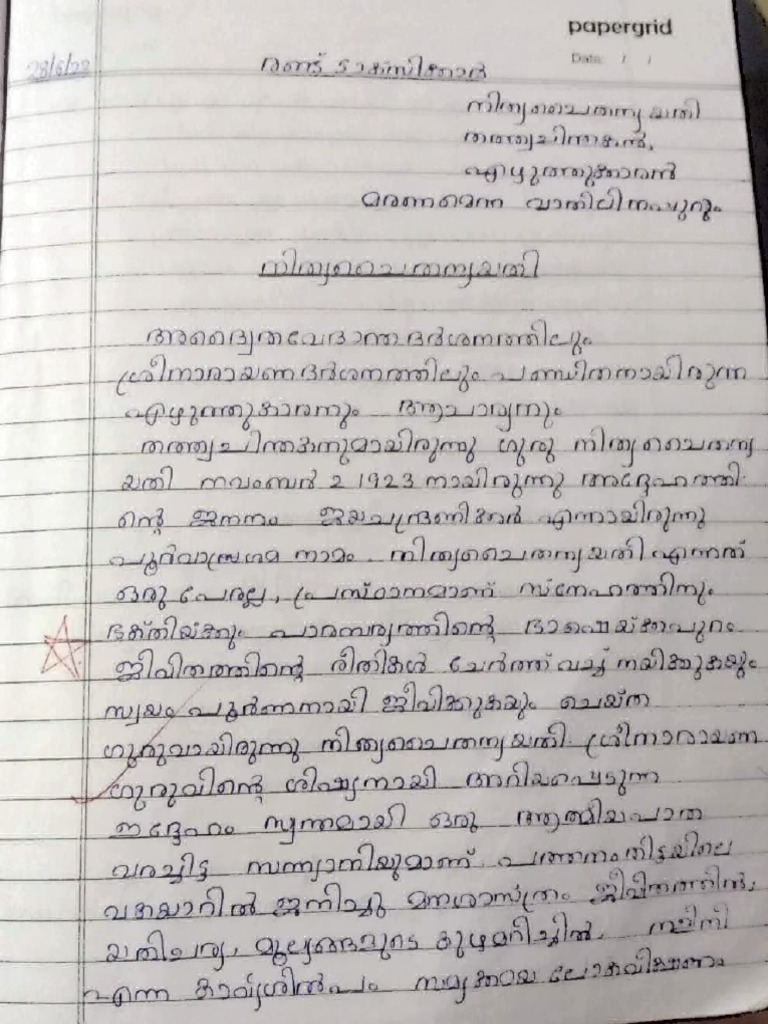 papergrid
Date: / /
28/6/23
രണ്ട് ടാക്സിക്കാർ
നിത്യചൈതന്യ യതി
തത്ത്വചിന്തകൻ,
എഴുത്തുക്കാരൻ
മരണമെന്ന വാതിലിനപ്പുറം
നിത്യചൈതന്യയതി
അദ്വൈതവേദാന്ത ദർശനത്തിലും
ശ്രീനാരായണദർശനത്തിലും പണ്ഡിതനായിരുന്ന
എഴുത്തുകാരനും ആചാര്യനും
തത്ത്വചിന്തകനുമായിരുന്നു ഗുരു നിത്യചൈതന്യ
യതി നവംബർ 2 1923 നായിരുന്നു അദ്ദേഹത്തി
ന്റെ ജനനം ജയചന്ദ്രപണിക്കർ എന്നായിരുന്നു
പൂർവാശ്രമ നാമം. നിത്യചൈതന്യയതി എന്നത്
ഒരു പേരല്ല, പ്രസ്ഥാനമാണ് സ്നേഹത്തിനും
ഭക്തിയ്ക്കും പാരമ്പര്യത്തിന്റെ
ജീവിതത്തിന്റെ രീതികൾ ചേർത്ത് വച്ച് നയിക്കുകയും
സ്വയം പൂർണനായി ജീവിക്കുകയും ചെയ്ത
ഗുരുവായിരുന്നു നിത്യചൈതന്യയതി. ശ്രീനാരായണ
ഗുരുവിന്റെ ശിഷ്യനായി അറിയപ്പെടുന്ന
ഇദ്ദേഹം സ്വന്തമായി ഒരു ആത്മീയപാത
വരച്ചിട്ട സന്ന്യാസിയുമാണ്. പത്തനംതിട്ടയിലെ
വകയാറിൽ ജനിച്ചു മനശാസ്ത്രം ജീവിതത്തിൽ,
യതിചര്യ, മൂല്യങ്ങളുടെ കുഴമറിച്ചിൽ, നളിനി
എന്ന കാവ്യശിൽപം ലോകവീക്ഷണം